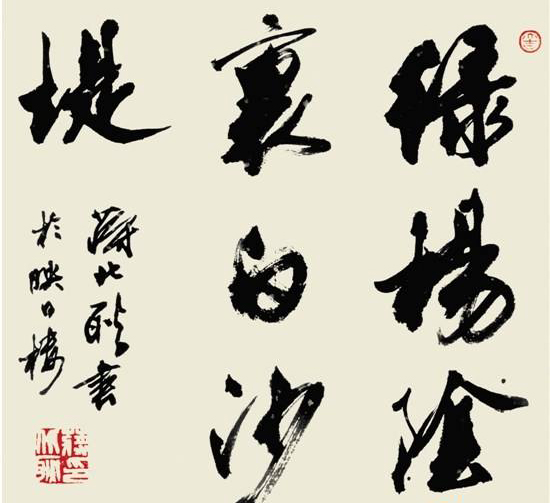 綠楊陰
裏白沙
堤
蔣北耿書
於映日樓